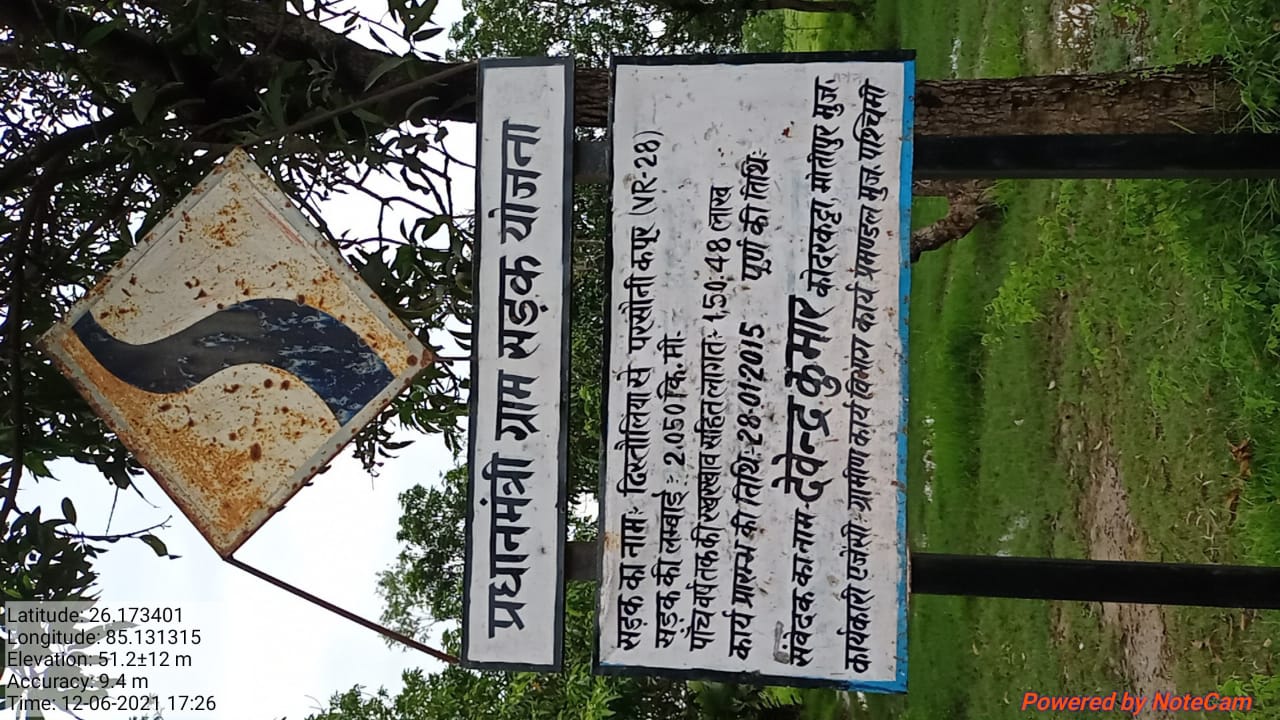 प्रधानमंत्री ग्राम सड़क योजना
सड़क का नामः दिस्तौलिया से परसौनी कपूर (VR-28)
सड़क की लम्बाई : 2.050 कि. मी.
पाँच वर्ष तक की रखरखाव सहित लागतः 1,50.48 लाख
कार्य प्रारम्भ की तिथिः-28-01-2015 पूर्ण की तिथिः
संवेदक का नाम- देवेन्द्र कुमार कोदरकट्टा, मोतीपुर मुज.
कार्यकारी एजेंसीः ग्रामीण कार्य विभाग कार्य प्रमण्डल मुज. पश्चिमी
Latitude: 26.173401
Longitude: 85.131315
Elevation: 51.2±12 m
Accuracy: 9.4 m
Time: 12-06-2021 17:26
Powered by NoteCam